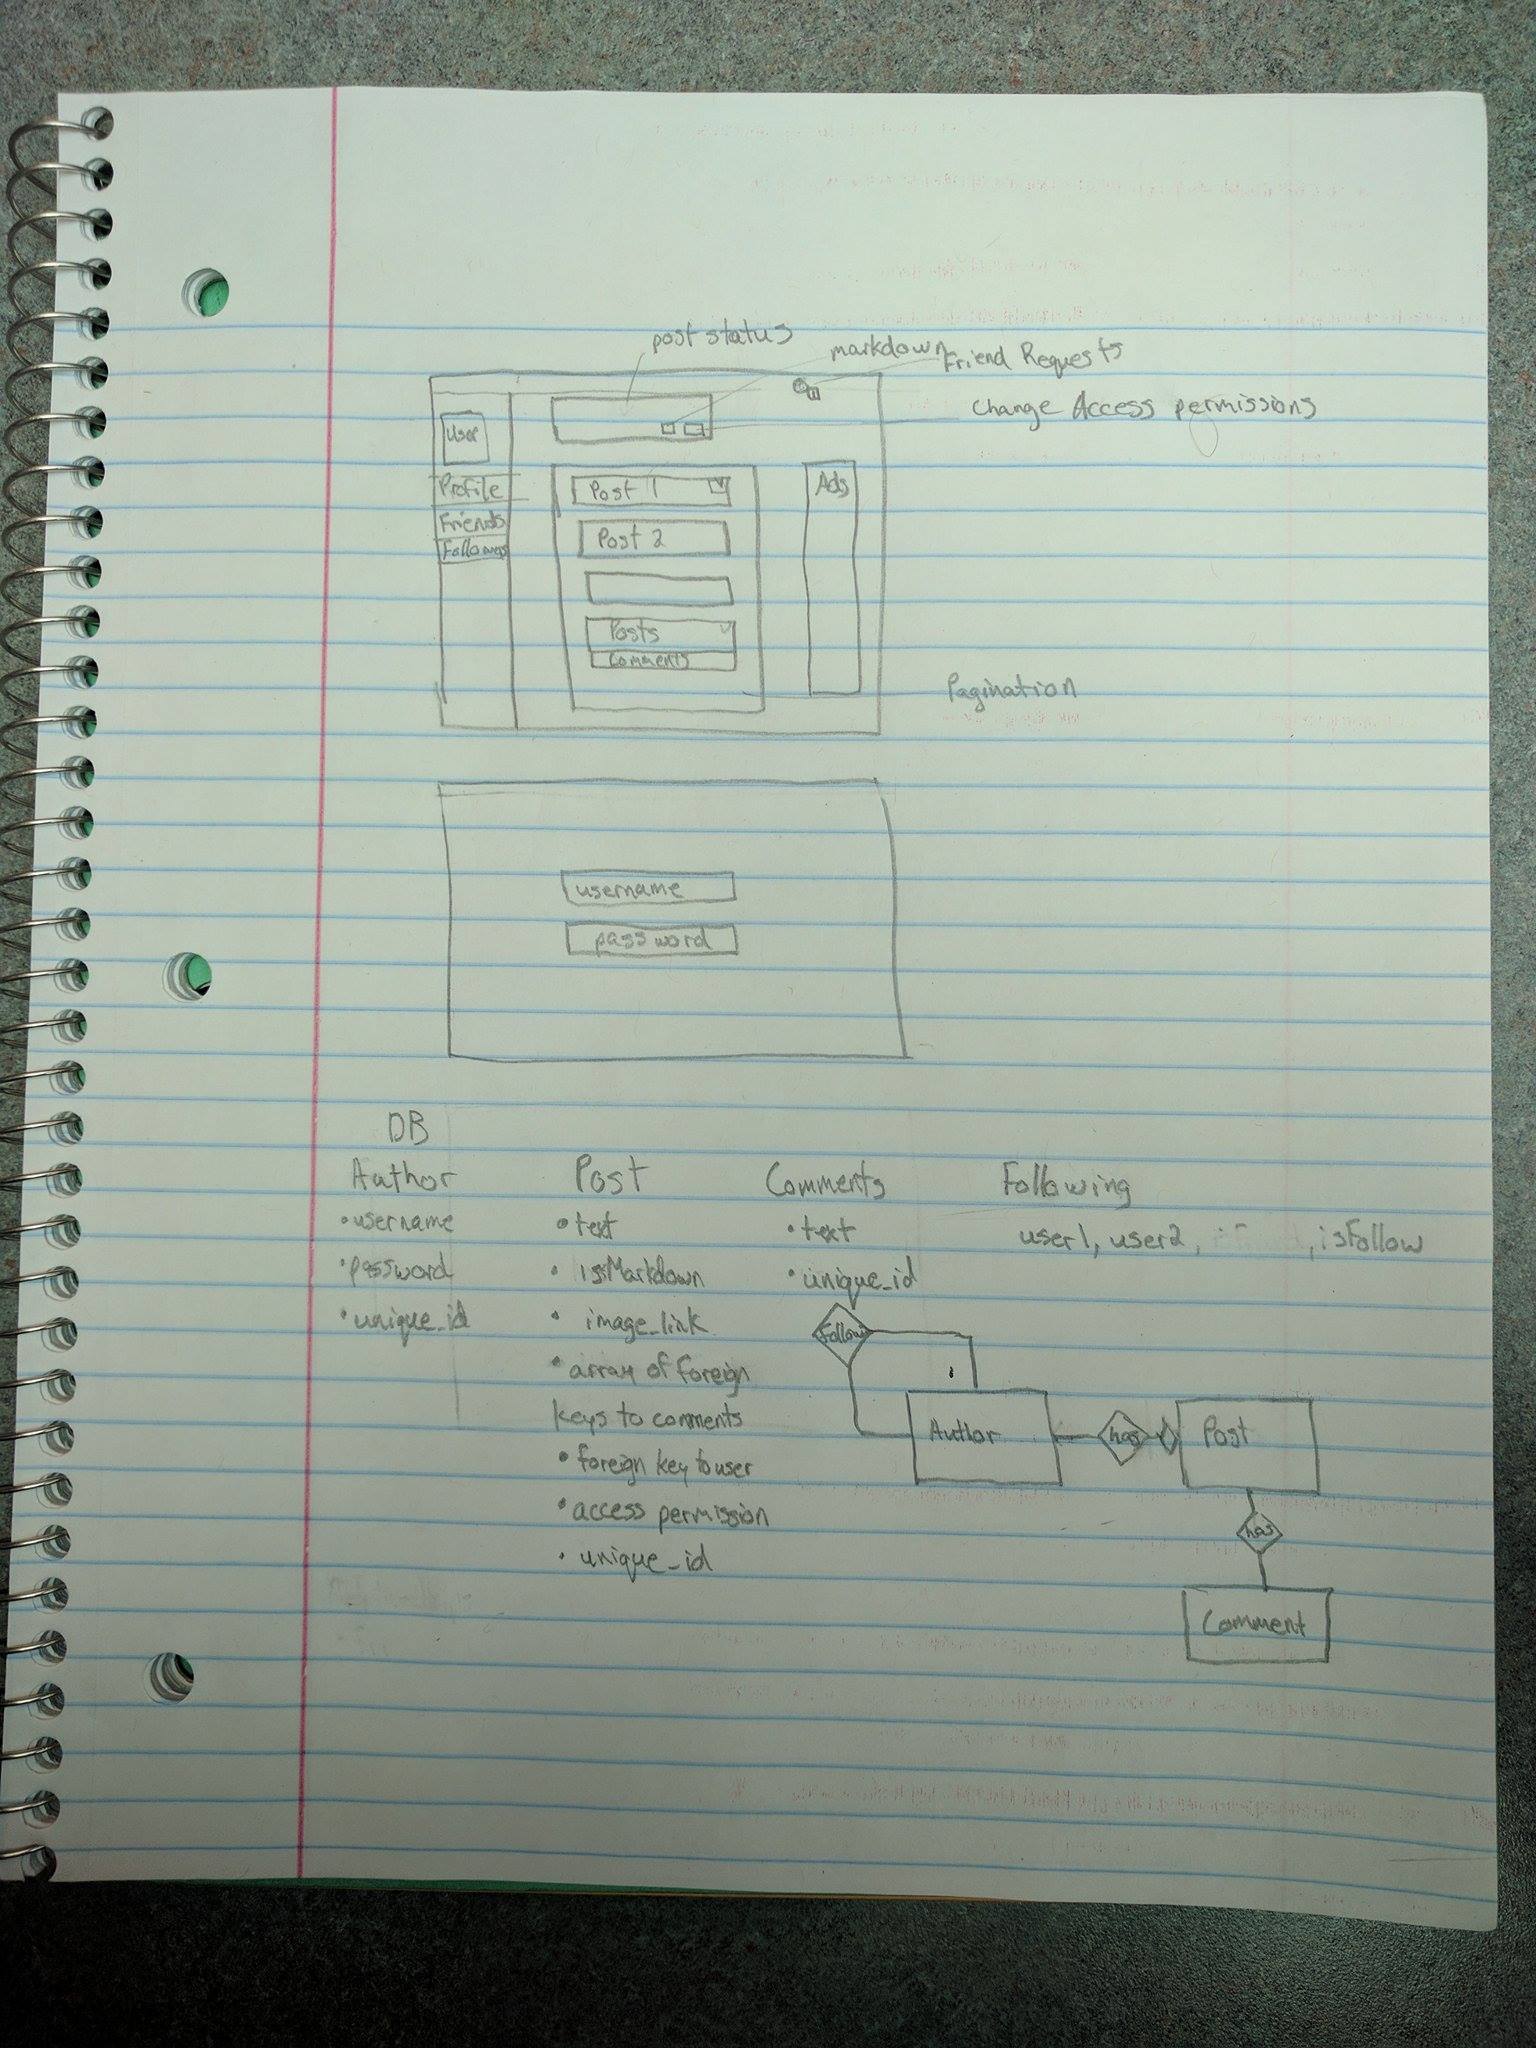 post status
markdown
Friend Requests
Change Access permissions
User
Profile
Friends
Followers
Post 1
Post 2
Posts
Comments
Ads
Pagination
username
password
DB
Author
• username
• password
• unique_id
Post
• text
• issMarkdown
• image_link
• array of foreign
keys to comments
• foreign key to user
• access permission
• unique_id
Comments
• text
• unique_id
Following
user1, user2, , isFollow
Follow
Author
has
Post
has
Comment